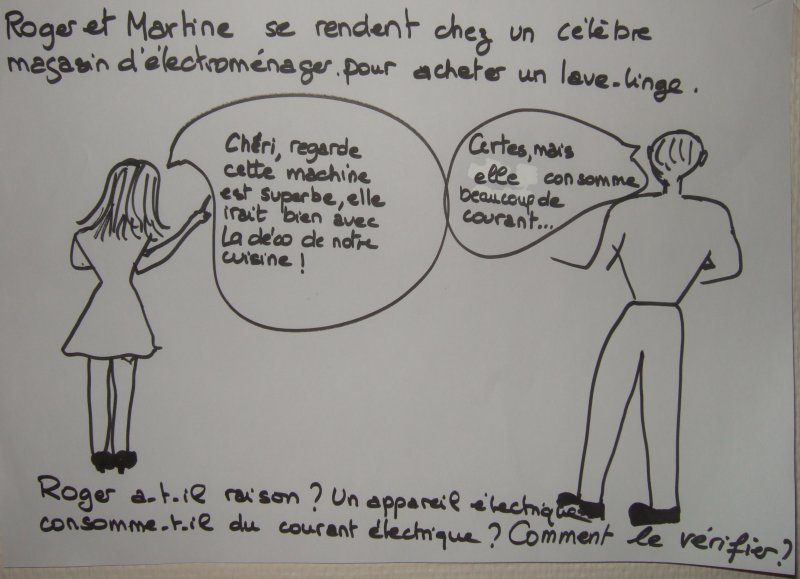 Roger et Martine se rendent chez un célèbre
magasin d'électroménager pour acheter un lave-linge.
Chéri, regarde
cette machine
est superbe, elle
irait bien avec
la déco de notre
cuisine !
Certes, mais
elle consomme
beaucoup de
courant...
Roger a-t-il raison ? Un appareil électrique
consomme-t-il du courant électrique ? Comment le vérifier ?